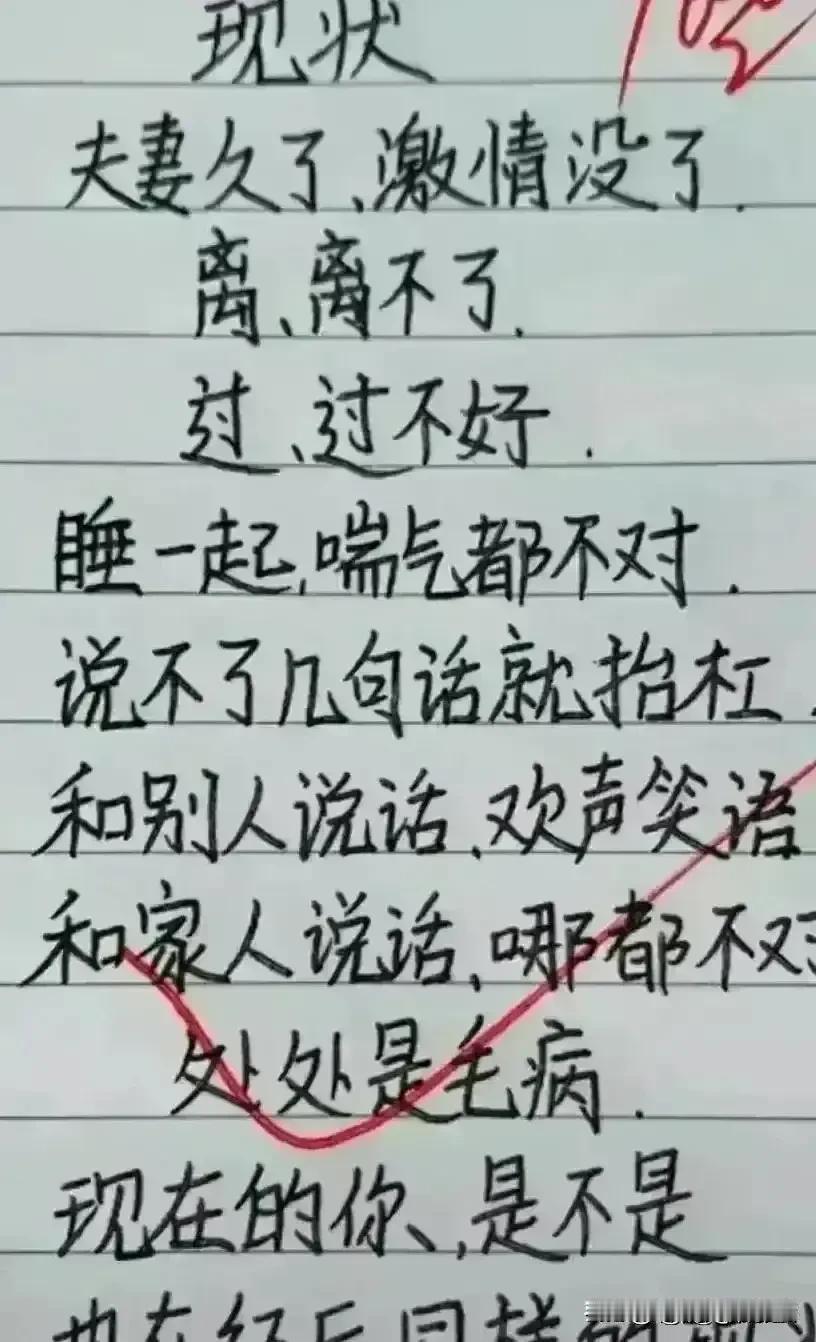 现状
夫妻久了、激情没了.
离、离不了.
过、过不好.
睡一起,喘气都不对.
说不了几句话就抬杠.
和别人说话、欢声笑语
和家人说话、哪都不对
处处是毛病.
现在的你、,是不是
也在经历同样的